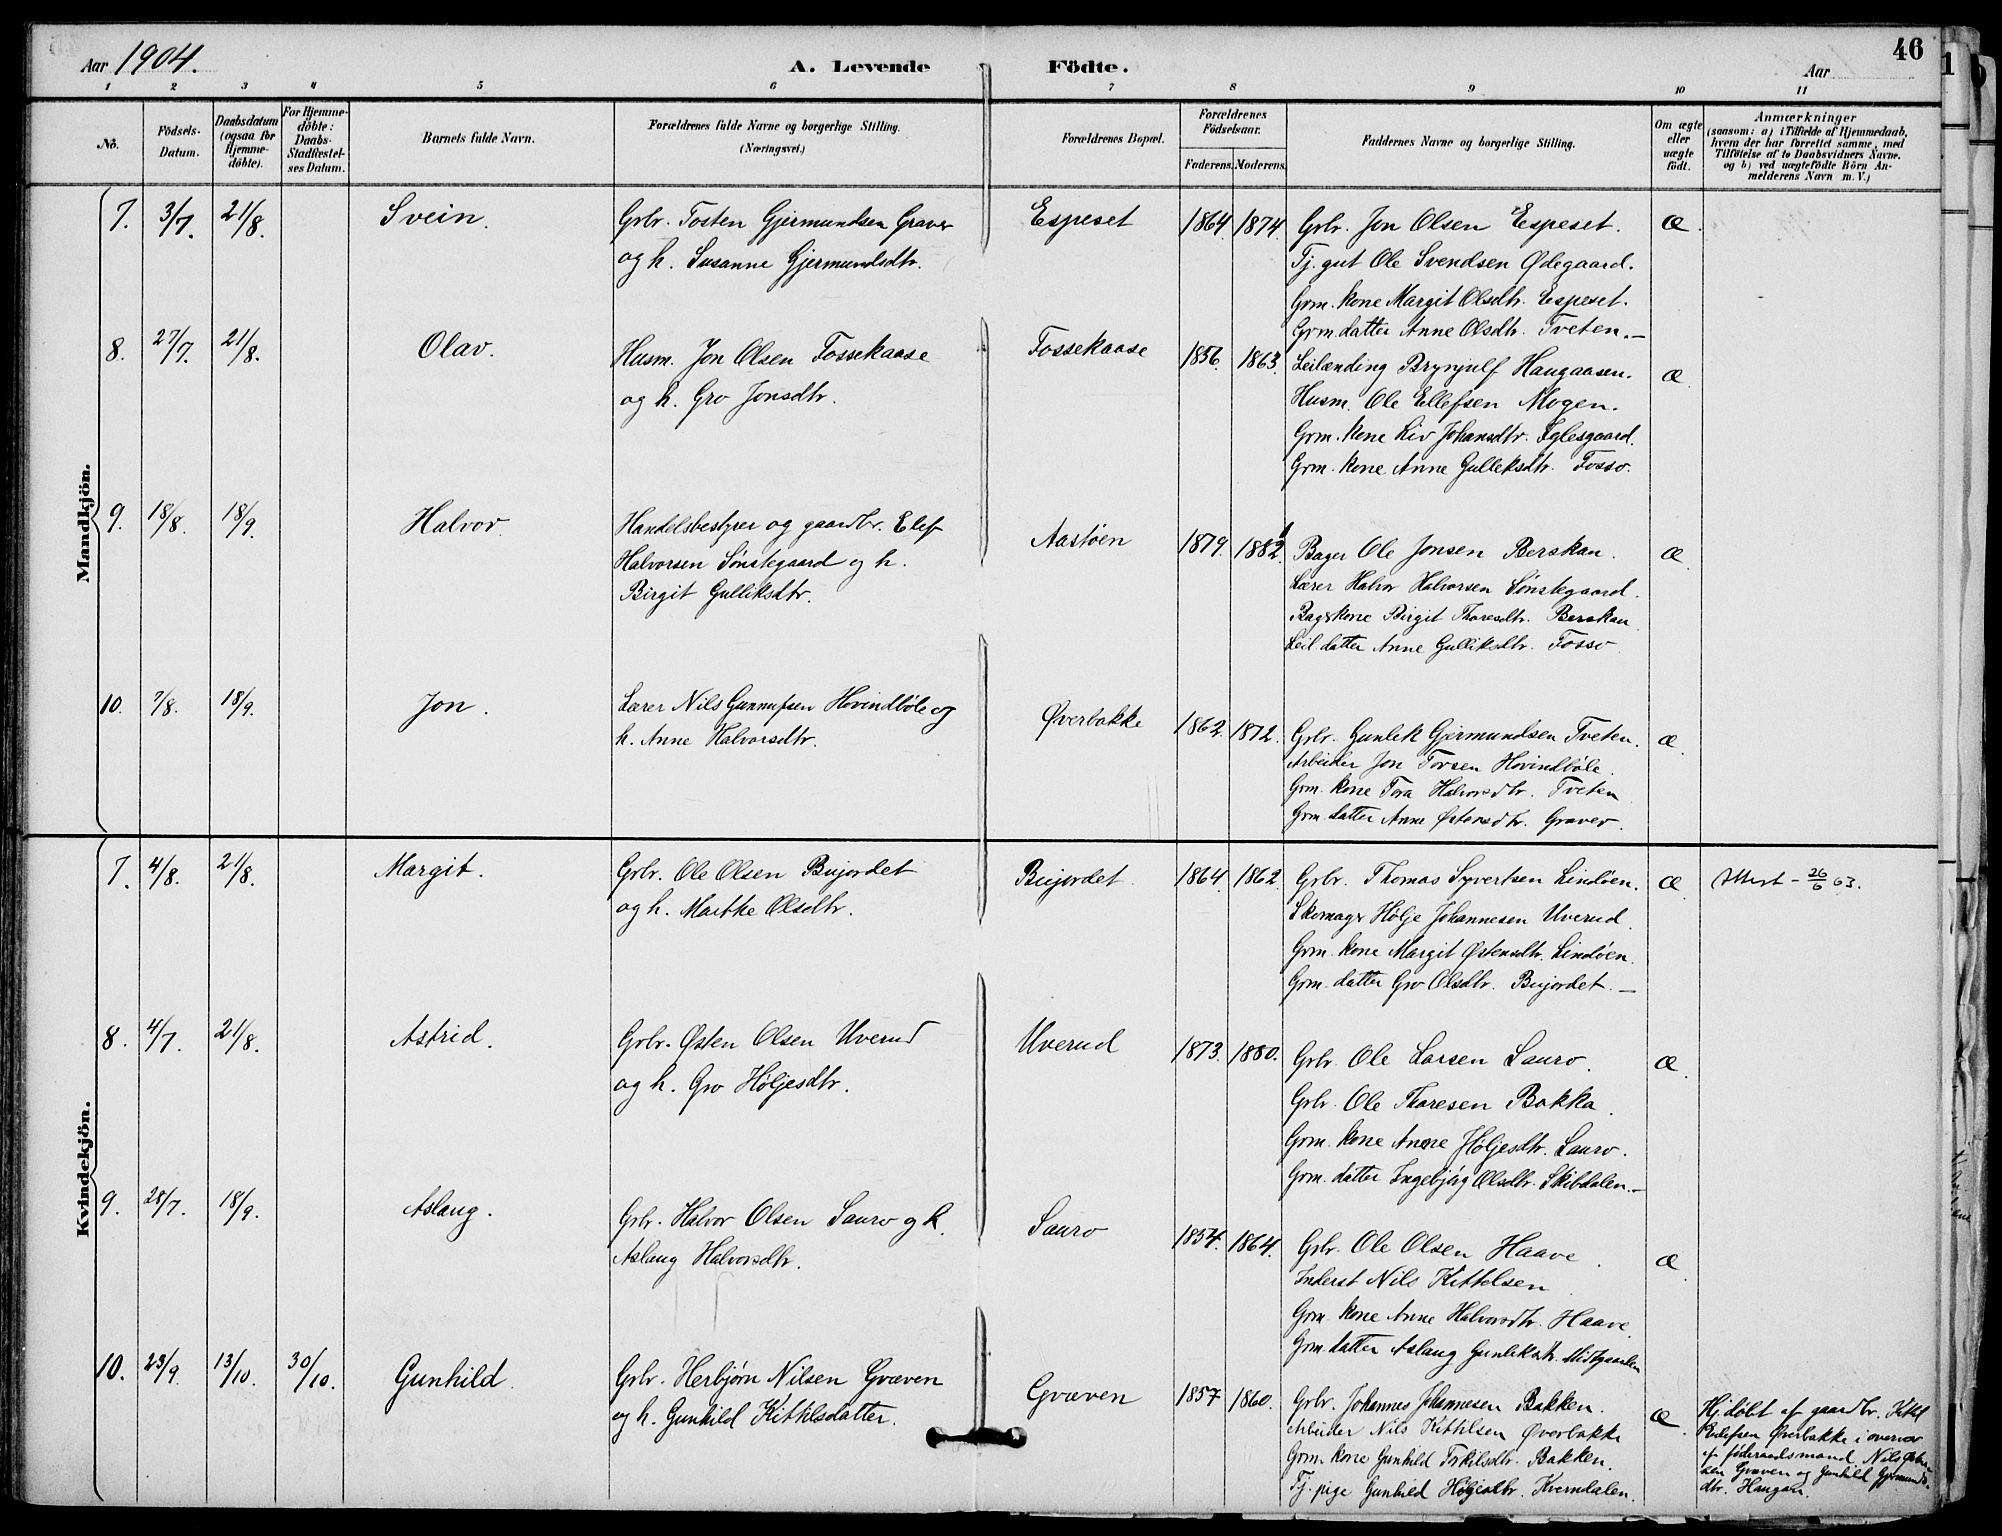 46
Aar 1904.
A. Levende Födte.
Aar
1 2 3 4 5 6 7 8 9 10 11
No.
Födsels-Datum.
Daabsdatum (ogsaa for Hjemme-döbte).
For Hjemme-döbte: Daabs-Stadfestel-ses Datum.
Barnets fulde Navn.
Forældrenes fulde Navne og borgerlige Stilling. (Næringsvei.)
Forældrenes Bopæl.
Forældrenes Födselsaar.
Faderens. Moderens.
Faddernes Navne og borgerlige Stilling.
Om ægte eller uægte födt.
Anmærkninger
(saasom: a) i Tilfælde af Hjemmedaab,
hvem der har forrettet samme, med
Tilföielse af to Daabsvidners Navne.
og b) ved uægtefödte Börn An-
melderens Navn m. V.)
Mandkjön.
7. 3/7. 21/8. Svein.
Grbr. Tosten Gjermundsen Graver
og h. Susanne Gjermundsdtr.
Espeset 1864 1874.
Grbr. Jon Olsen Espeset. Æ.
Tj. gut Ole Svendsen Ødegaard.
Grm. kone Margit Olsdtr. Espeset.
Grm. datter Anne Olsdtr. Tveten.—
8. 27/7. 21/8. Olav.
Husm. Jon Olsen Fossekaase
og h. Gro Jonsdtr.
Fossekaase 1856. 1863.
Leilænding Brynjulf Haugaasen. Æ.
Husm. Ole Ellefsen Mogen.
Grm. kone Liv Johansdtr. Eglesgaard.
Grm. kone Anne Gulleksdtr. Fosso.
9. 18/8. 18/9. Halvor.
Handelsbestyrer og gaardbr. Elef
Halvorsen Sønstegaard og h.
Birgit Gulliksdtr.
Aastøen 1879. 1882.
Bager Ole Jonsen Berskan. Æ.
Lærer Halvor Halvorsen Sønstegaard.
Bagerkone Birgit Thoresdtr. Berskan.
Leil. datter Anne Gulliksdtr. Fosso.
10. 7/8. 18/9. Jon.
Lærer Nils Gunnufsen Hovindbøle og
h. Anne Halvorsdtr.
Øverbakke 1862. 1872.
Grbr. Gunlek Gjermundsen Tveten. Æ.
Arbeider Jon Torsen Hovindbøle.
Grm. kone Tora Halvorsdtr. Tveten
Grm. datter Anne Østensdtr. Graver.
Kvindekjön.
7. 4/8. 21/8. Margit.
Grbr. Ole Olsen Bujordet
og h. Marthe Olsdtr.
Bujordet. 1864 1862
Grbr. Thomas Syvertsen Lindøen. Æ.
Skomager Hølje Johannesen Uverud.
Grm. kone Margit Østensdtr. Lindøen.
Grm. datter Gro Olsdtr. Bujordet.—
Attest – 26/6 63.
8. 4/7. 21/8. Astrid.
Grbr. Østen Olsen Uverud
og h. Gro Høljesdtr.
Uverud 1873. 1880.
Grbr. Ole Larsen Sauro. Æ.
Grbr. Ole Thoresen Bakka.
Grm. kone Anne Høljesdtr. Sauro.
Grm. datter Ingebjørg Olsdtr. Skibdalen.—
9. 28/7. 18/9. Aslaug.
Grbr. Halvor Olsen Sauro og h.
Aslaug Halvorsdtr.
Sauro 1854. 1864.
Grbr. Ole Olsen Haave. Æ.
Inderst Nils Kittelsen
Grm. kone Anne Halvorsdtr. Haave.
Grm. datter Aslaug Gunleksdtr. Midtgaarden
10. 23/9. 13/10. 30/10. Gunhild.
Grbr. Herbjørn Nilsen Græven
og h. Gunhild Kittilsdatter.
Græven 1857 1860.
Grbr. Johannes Johannesen Bakken. Æ.
Arbeider Nils Kittilsen Øverbakke
Grm. kone Gunhild Torkilsdtr. Bakken.
Tj. pige Gunhild Høljesdtr. Kverndalen.
Hj. døbt af gaardbr. Kittel
Ellefsen Øverbakke i overvær
af føderaadsmand Nils
sen Græven og Gunhild Gjermunds-
dtr. Haugan.